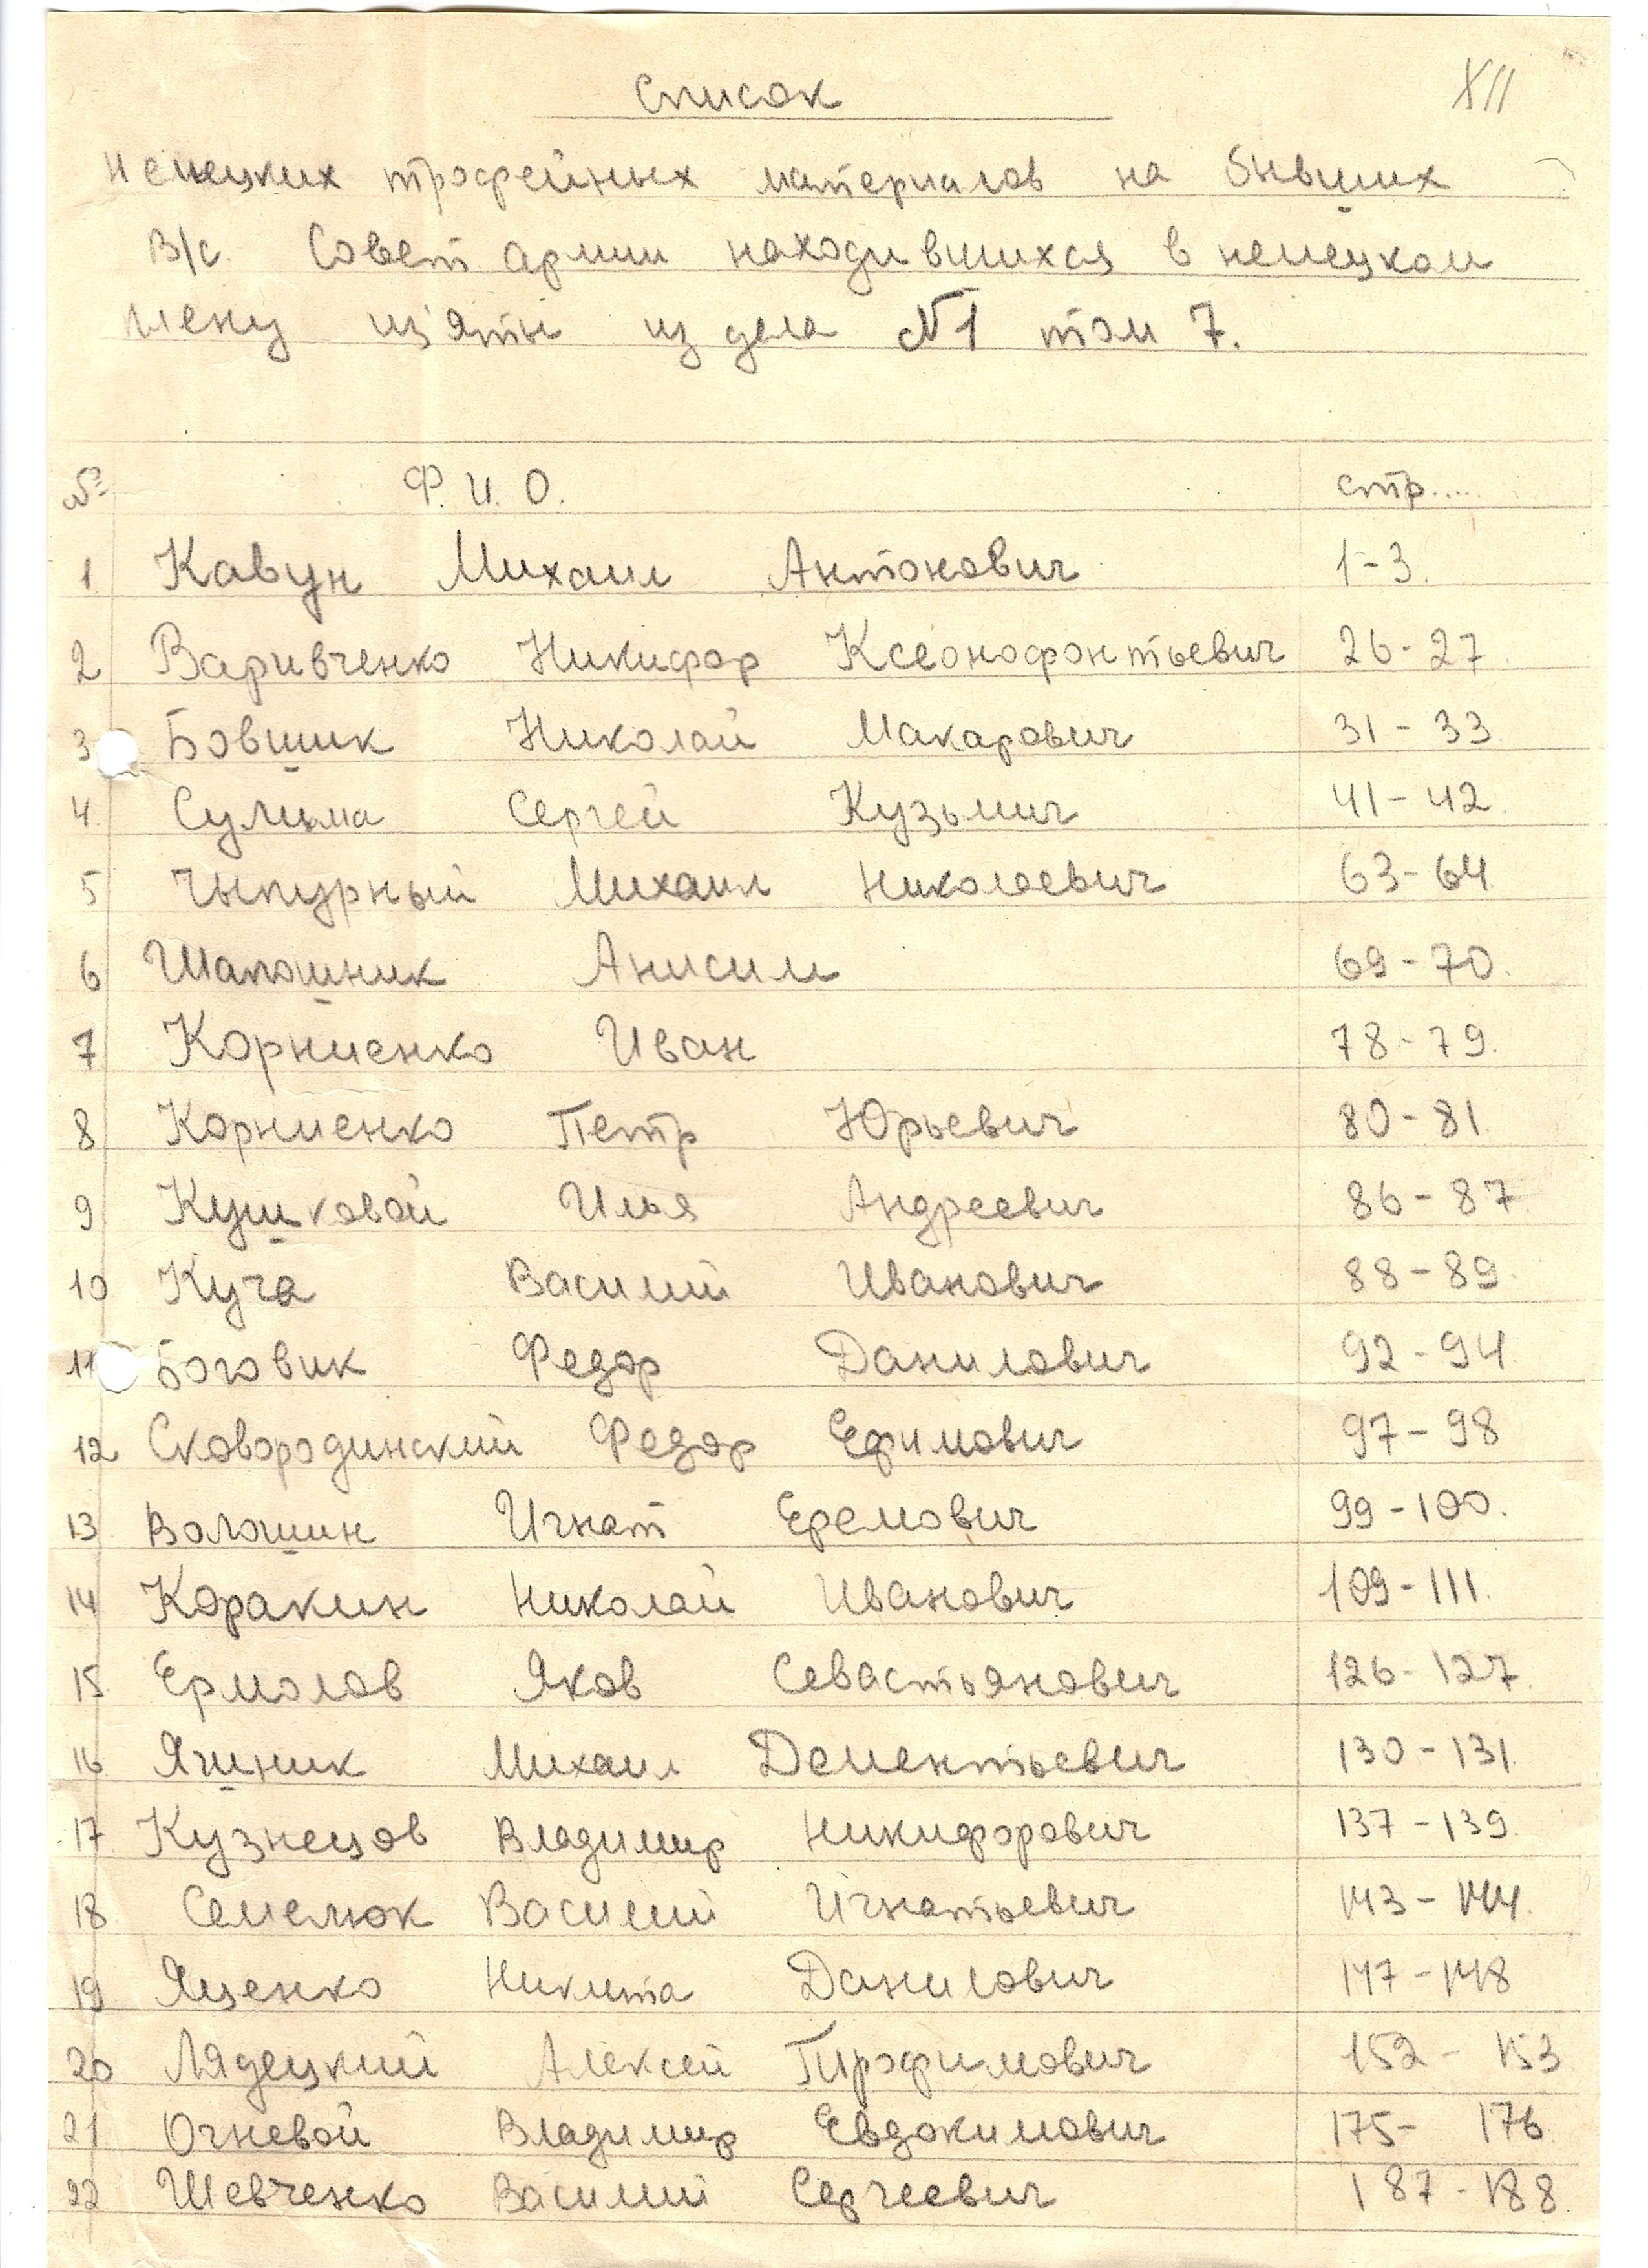 Список
XII
немецких трофейных материалов на бывших
В/с. Совет. армии находившихся в немецком
плену из'яты из дела №1 том 7.
№ Ф. И. О. стр.....
1 Кавун Михаил Антонович 1-3.
2 Варивченко Никифор Ксеонофонтьевич 26-27.
3 Бовшик Николай Макарович 31-33
4. Сулима Сергей Кузьмич 41-42
5 Чыпурный Михаил Николаевич 63-64
6 Шапошник Анисим 69-70.
7 Корниенко Иван 78-79.
8 Корниенко Петр Юрьевич 80-81
9 Кушковой Илья Андреевич 86-87
10 Куча Василий Иванович 88-89.
11 Боговик Федор Данилович 92-94
12 Сковородинский Федор Ефимович 97-98
13 Волошин Игнат Еремович 99-100.
14 Коракин Николай Иванович 109-111.
15 Ермолов Яков Севастьянович 126-127.
16 Ягшник Михаил Дементьевич 130-131.
17 Кузнецов Владимир Никифорович 137-139.
18 Семелюк Василий Игнатьевич 143-144.
19 Яценко Никита Данилович 147-148
20 Лядецкий Алексей Трофимович 152-153
21 Огневой Владимир Евдокимович 175-176
22 Шевченко Василий Сергеевич 187-188.